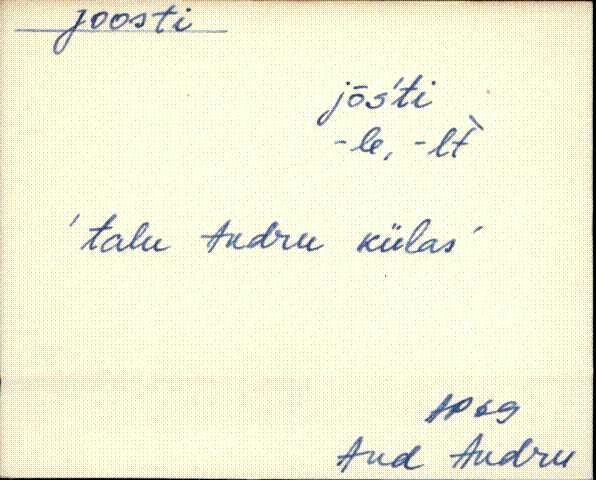 Joosti
jōśti
-le, -lt̀
'talu Andru külas'
AP69
And Andru